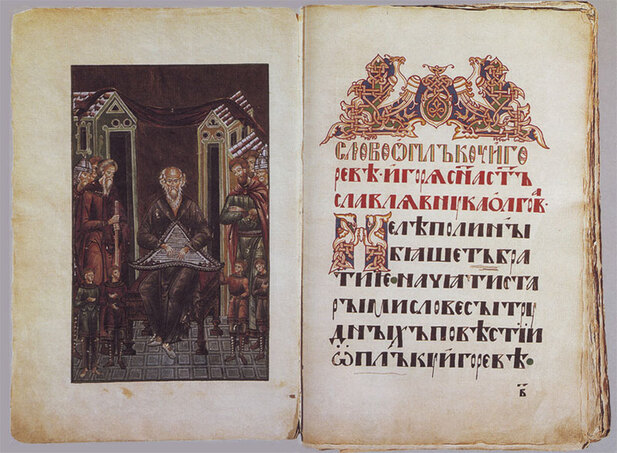 СЛОВОѾПЛЪКОУИГО
РЕВѢ·ИГОРѦСН҃АСТЪ
СЛАВЛѦВНꙋКАОЛГОВⷶ
НЕЛѢПОЛИНЫ
БѦШЕТЬБРА
ТИЕ·НАЧѦТИСТА
РЫМИСЛОВЕСЫТРꙋ
ДНЫХЪПОВѢСТІИ
ѠПЛЪКꙋИГОРЕВѢ·
в҃